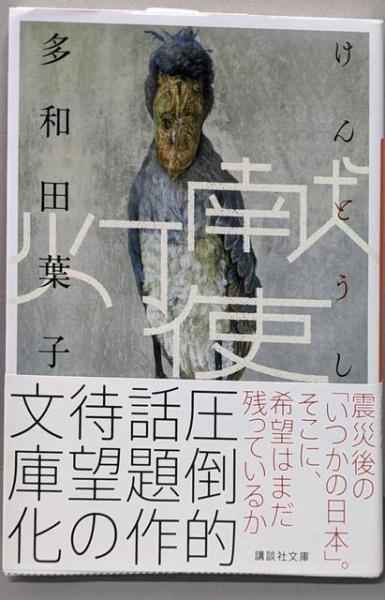 けんとうし
献灯使
多和田葉子
震災後の
「いつかの日本」。
そこに、
希望はまだ
残っているか
圧倒的
話題作
待望の
文庫化
講談社文庫